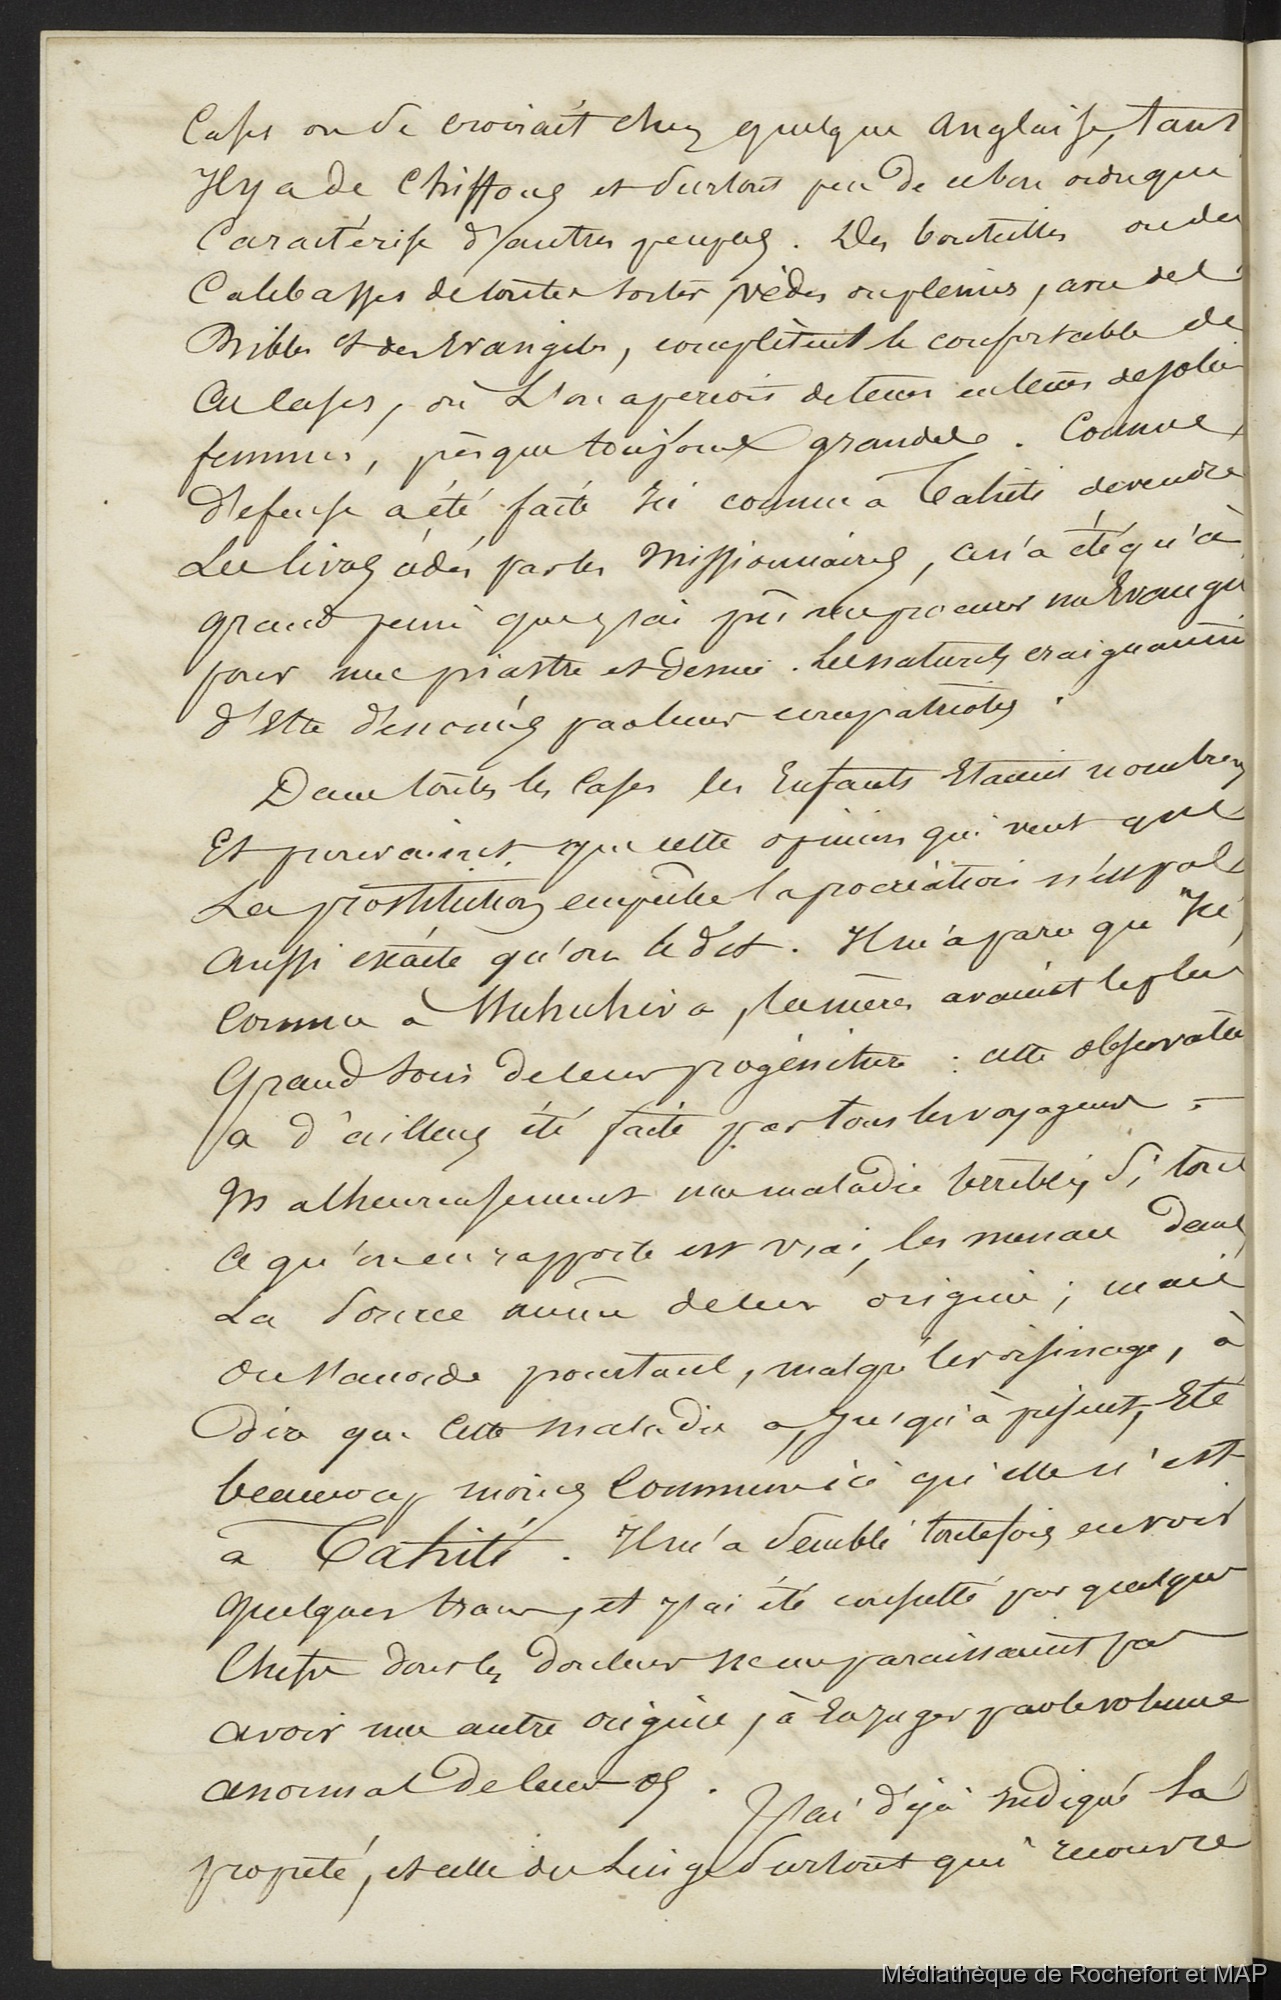 Cases on se croirait chez quelque anglaise, tant
Il y a de Chiffons et surtout peu de ce bon ordre qui
Caractérise d'autres peuples. Des bouteilles ou des
Calebasses de toutes sortes, vides ou pleines, avec des
Bibles et des Evangiles, complètent le confortable de
Ces cases, où L'on aperçoit de tems en tems de jolies
femmes, presque toujours grandes. Comme
défense a été faite Ici comme à Tahiti de vendre
Les livres cédés par les Missionnaires, ce n'a été qu'à
grand peine que j'ai pû me procurer un Evangile
pour une piastre et demie. Les naturels craignaient
d'être dénoncés par leurs compatriotes.
Dans toutes les Cases les Enfants Etaient nombreux
Et prouvaient que cette opinion qui veut que
La prostitution empêche la procréation n'est pas
aussi exacte qu'on le dit. Il m'a paru qu'Ici,
Comme à Nuhuhiva, les mères avaient le plus
Grand soin de leur progéniture : cette observation
a d'ailleurs été faite par tous les voyageurs. —
Malheureusement une maladie terrible, si tout
Ce qu'on en rapporte est vrai, les menace dans
La source même de leur origine ; mais
On s'accorde pourtant, malgré le voisinage, à
dire que Cette maladie a, jusqu'à présent, Eté
beaucoup moins Commune ici qu'elle n'est
à Tahiti. Il m'a semblé toutefois en voir
Quelques traces, et j'ai été consulté par quelques
Chefs dont les douleurs ne me paraissaient pas
avoir une autre origine, à En juger par le volume
anormal de leurs os. J'ai déjà Indiqué la
propreté, et celle du Linge surtout qui recouvre
Médiathèque de Rochefort et MAP